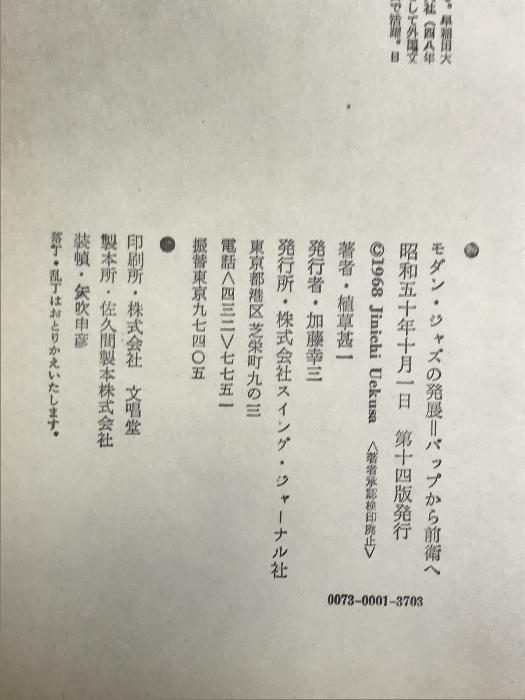 。早稲田大
社（四八年
して外国文
で活躍。目
モダン・ジャズの発展＝バップから前衛へ
昭和五十年十月一日　第十四版発行
©1968 Jinichi Uekusa　〈著者承認検印廃止〉
著者・植草甚一
発行者・加藤幸三
発行所・株式会社スイング・ジャーナル社
東京都港区芝栄町九の三
電話〈四三二〉七七五一
振替東京九七四〇五
印刷所・株式会社　文唱堂
製本所・佐久間製本株式会社
装幀・矢吹申彦
落丁・乱丁はおとりかえいたします。
0073-0001-3703